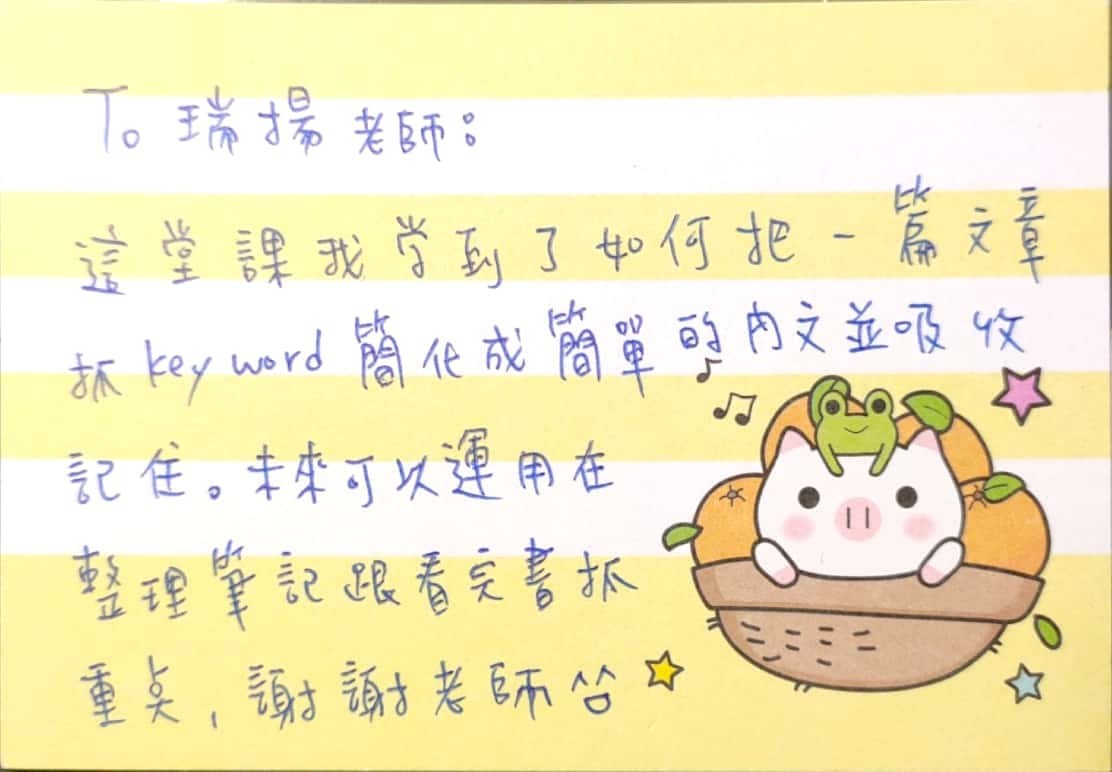 To 瑞揚老師：
這堂課我学到了如何把一篇文章
抓 keyword 簡化成簡單的內文並吸收
記住。未來可以運用在
整理筆記跟看完書抓
重点，謝謝老師